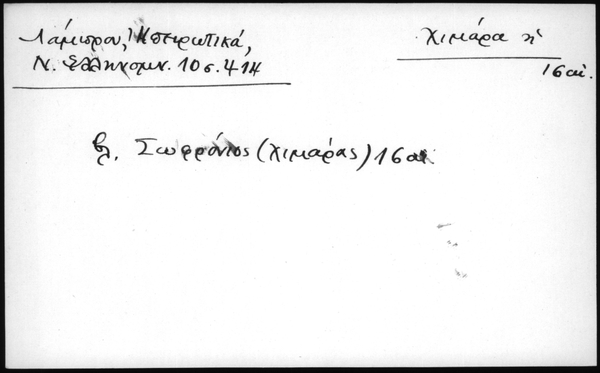 Λάμπρου, Ἠπειρωτικά,
Ν. Ἑλληνομν. 10 σ. 414
Χιμάρα ἡ
16 αἰ.
βλ. Σωφρόνιος (Χιμάρας) 16 αἰ.